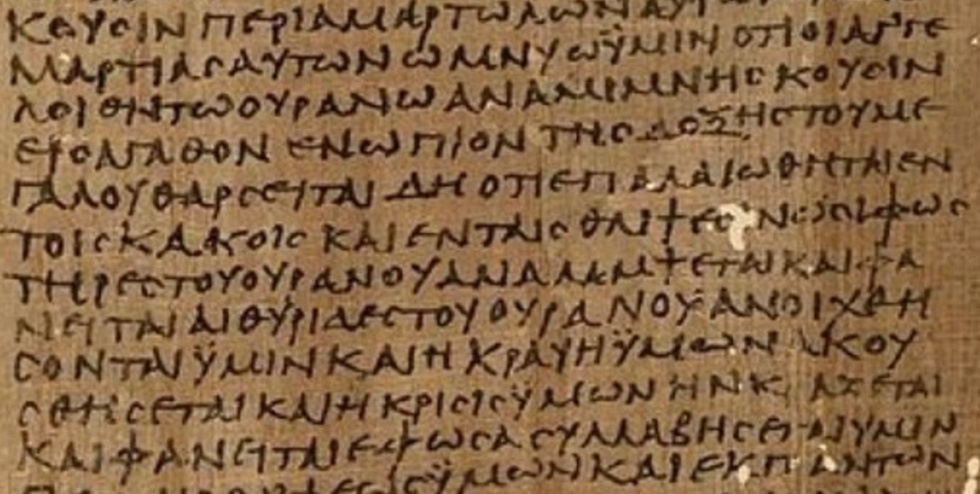 ΚΟΥϹΙΝ ΠΕΡΙ ΑΜΑΡΤΩΛΩΝ
ΜΑΡΤΙΑϹ ΑΥΤΩΝ ΩΜΝΥΩ ΫΜΙΝ ΟΤΙ ΟΙ ΑΓΓΕ
ΛΟΙ ΕΝ ΤΩ ΟΥΡΑΝΩ ΑΝΑΜΙΜΝΗϹΚΟΥϹΙΝ
ΕΙϹ ΑΓΑΘΟΝ ΕΝΩΠΙΟΝ ΤΗϹ ΔΟΞΗϹ ΤΟΥ ΜΕ
ΓΑΛΟΥ ΘΑΡϹΕΙΤΑΙ ΔΗ ΟΤΙ ΕΠΑΛΑΙΩΘΗΤΑΙ ΕΝ
ΤΟΙϹ ΚΑΚΟΙϹ ΚΑΙ ΕΝ ΤΑΙϹ ΘΛΙΨΕϹΙΝ ΩϹΙ ΦΩϹ
ΤΗΡΕϹ ΤΟΥ ΟΥΡΑΝΟΥ ΑΝΑΛΑΜΨΕΤΑΙ ΚΑΙ ΦΑ
ΝΕΙΤΑΙ ΑΙ ΘΥΡΙΔΕϹ ΤΟΥ ΟΥΡΑΝΟΥ ΑΝΟΙΧΘΗ
ϹΟΝΤΑΙ ΫΜΙΝ ΚΑΙ Η ΚΡΑΥΗ ΫΜΩΝ ΑΚΟΥ
ϹΘΗϹΕΤΑΙ ΚΑΙ Η ΚΡΙϹΙϹ ΫΜΩΝ ΗΝ
ΚΑΙ ΦΑΝΕΙΤΑΙ ΕΦ ΩϹΑ ϹΥΛΛΑΒΗϹΕΤΑΙ ΥΜΙΝ
ΫΜΩΝ ΚΑΙ ΕΚ ΠΑΝΤΩΝ